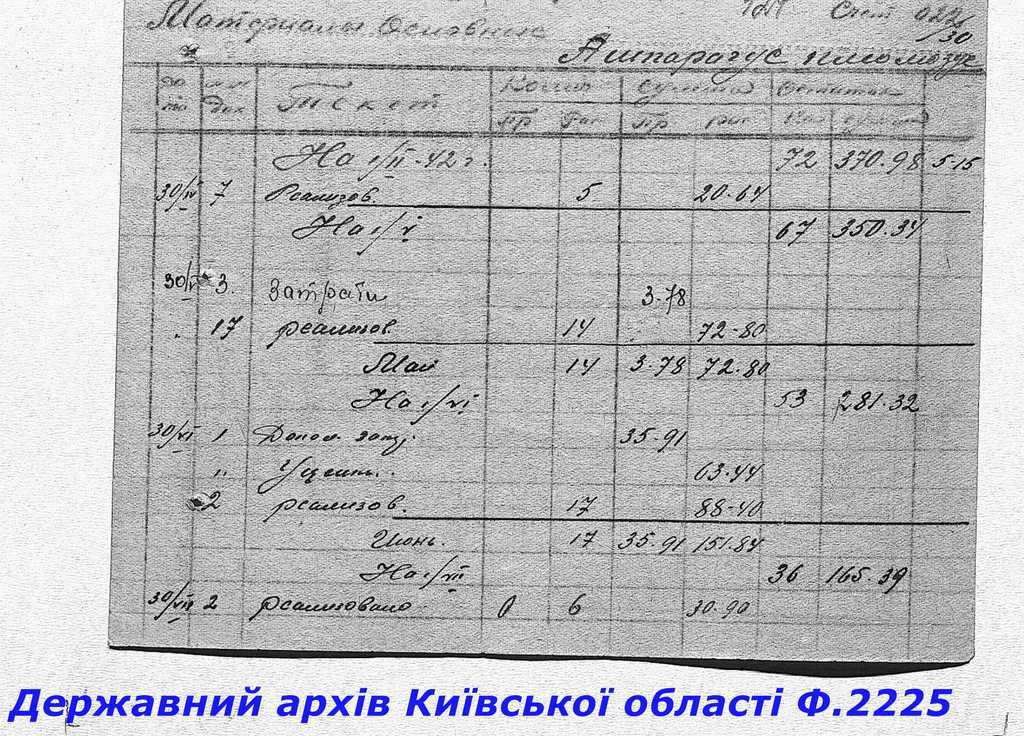 Счет 022/30
Материалы Основные
Аспарагус плюмозус
Текст Колич Сумма Остаток
Пр Рас Пр Рас Кол Сумма
На 1/II-42 г. 72 370.98 5-15
30/IV 7 Реализов. 5 20.64
На 1/V 67 350.34
30/V 3. Затрати 3.78
17 реализов. 14 72-80
Май 14 3.78 72.80
На 1/VI 53 281.32
30/VI 1 Допол. затр. 35.91
" Уценк. 63.44
2 реализов. 17 88-40
Июнь. 17 35.91 151.84
На 1/VII 36 165.39
30/VII 2 реализовано 6 30.90
Державний архів Київської області Ф.2225